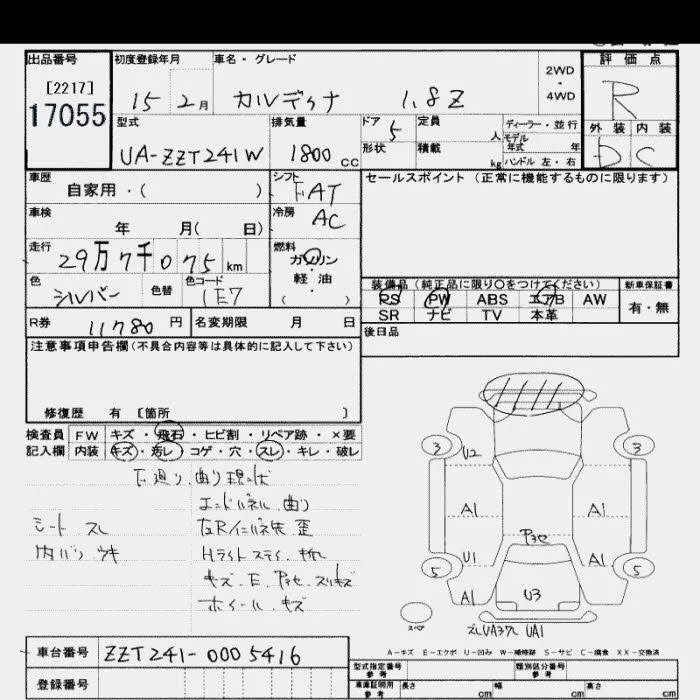 出品番号 初度登録年月 車名・グレード 2WD・4WD 評価点
[2217]
17055 15 2月 カルディナ 1.8Z R
型式 排気量 ドア 5 定員 人 ディーラー・並行 外装 内装
モデル年式 年
UA-ZZT241W 1800 CC 形状 積載 kg ハンドル 左・右 D C
車歴 シフト FAT セールスポイント(正常に機能するものに限ります)
自家用・( )
車検 冷房 AC
年 月( 日)
走行 燃料
29万7千075km ガソリン・軽油
( )
色 シルバー 色替 色コード 1E7
装備品(純正品に限り○をつけてください) 新車保証書
PS PW ABS エアB AW 有・無
SR ナビ TV 本革
R券 11780円 名変期限 月 日 後日品
注意事項申告欄(不具合内容等は具体的に記入して下さい)
修復歴 有 [箇所 ]
検査員 FW キズ・飛石・ヒビ割・リペア跡・×要
記入欄 内装 キズ・汚レ・コゲ・穴・スレ・キレ・破レ
下廻り.曲り現状
エンドパネル.曲り
シート スレ
内バリ ウキ
キズ.E.
ホイール.キズ
3 3
U2
A1 A1
U1 A1
5 5
A1 U3
スペア
UA1
A-キズ E-エクボ U-凹み W-補修跡 S-サビ C-腐食 XX-交換済
車台番号 ZZT241-0005416
登録番号
型式指定番号 参考 類別区分番号 参考
車庫証明用 参考 長さ cm 幅 cm 高さ cm